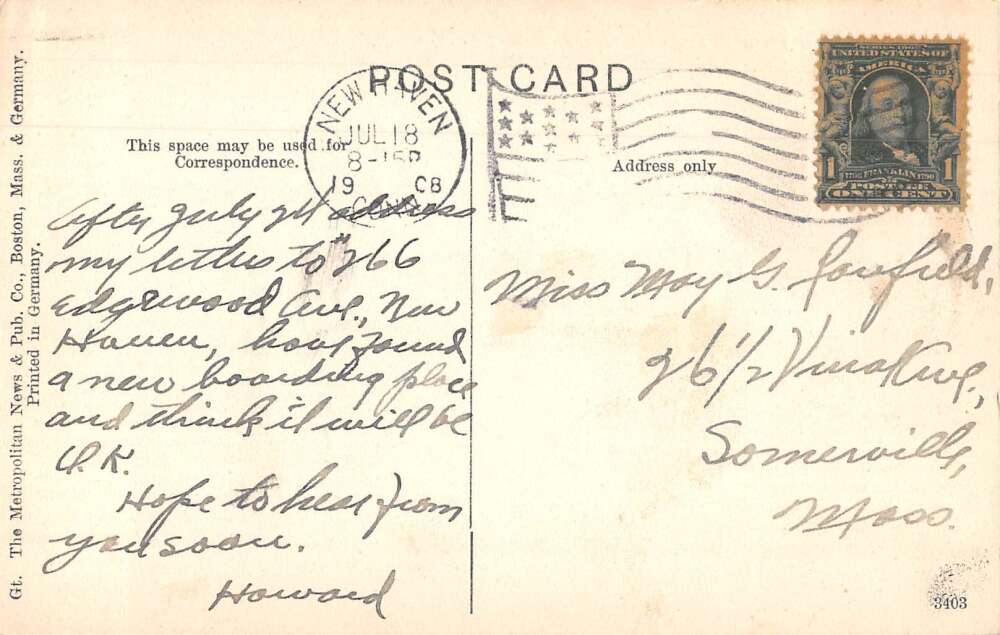 POST CARD
This space may be used for
Correspondence.
Address only
NEW HAVEN
JUL 18
8-15P
19 08
CONN.
SERIES 1902
UNITED STATES OF
AMERICA
1 1706 FRANKLIN 1790 1
POSTAGE
ONE CENT
After July 21 address
my letters to #266
Edgewood Ave., New
Haven, have found
a new boarding place
and think it will be
O.K.
Hope to hear from
you soon.
Howard
Miss May G.
26 1/2 Vinal Ave,
Somerville,
Mass.
3403
Gt. The Metropolitan News & Pub. Co., Boston, Mass. & Germany.
Printed in Germany.